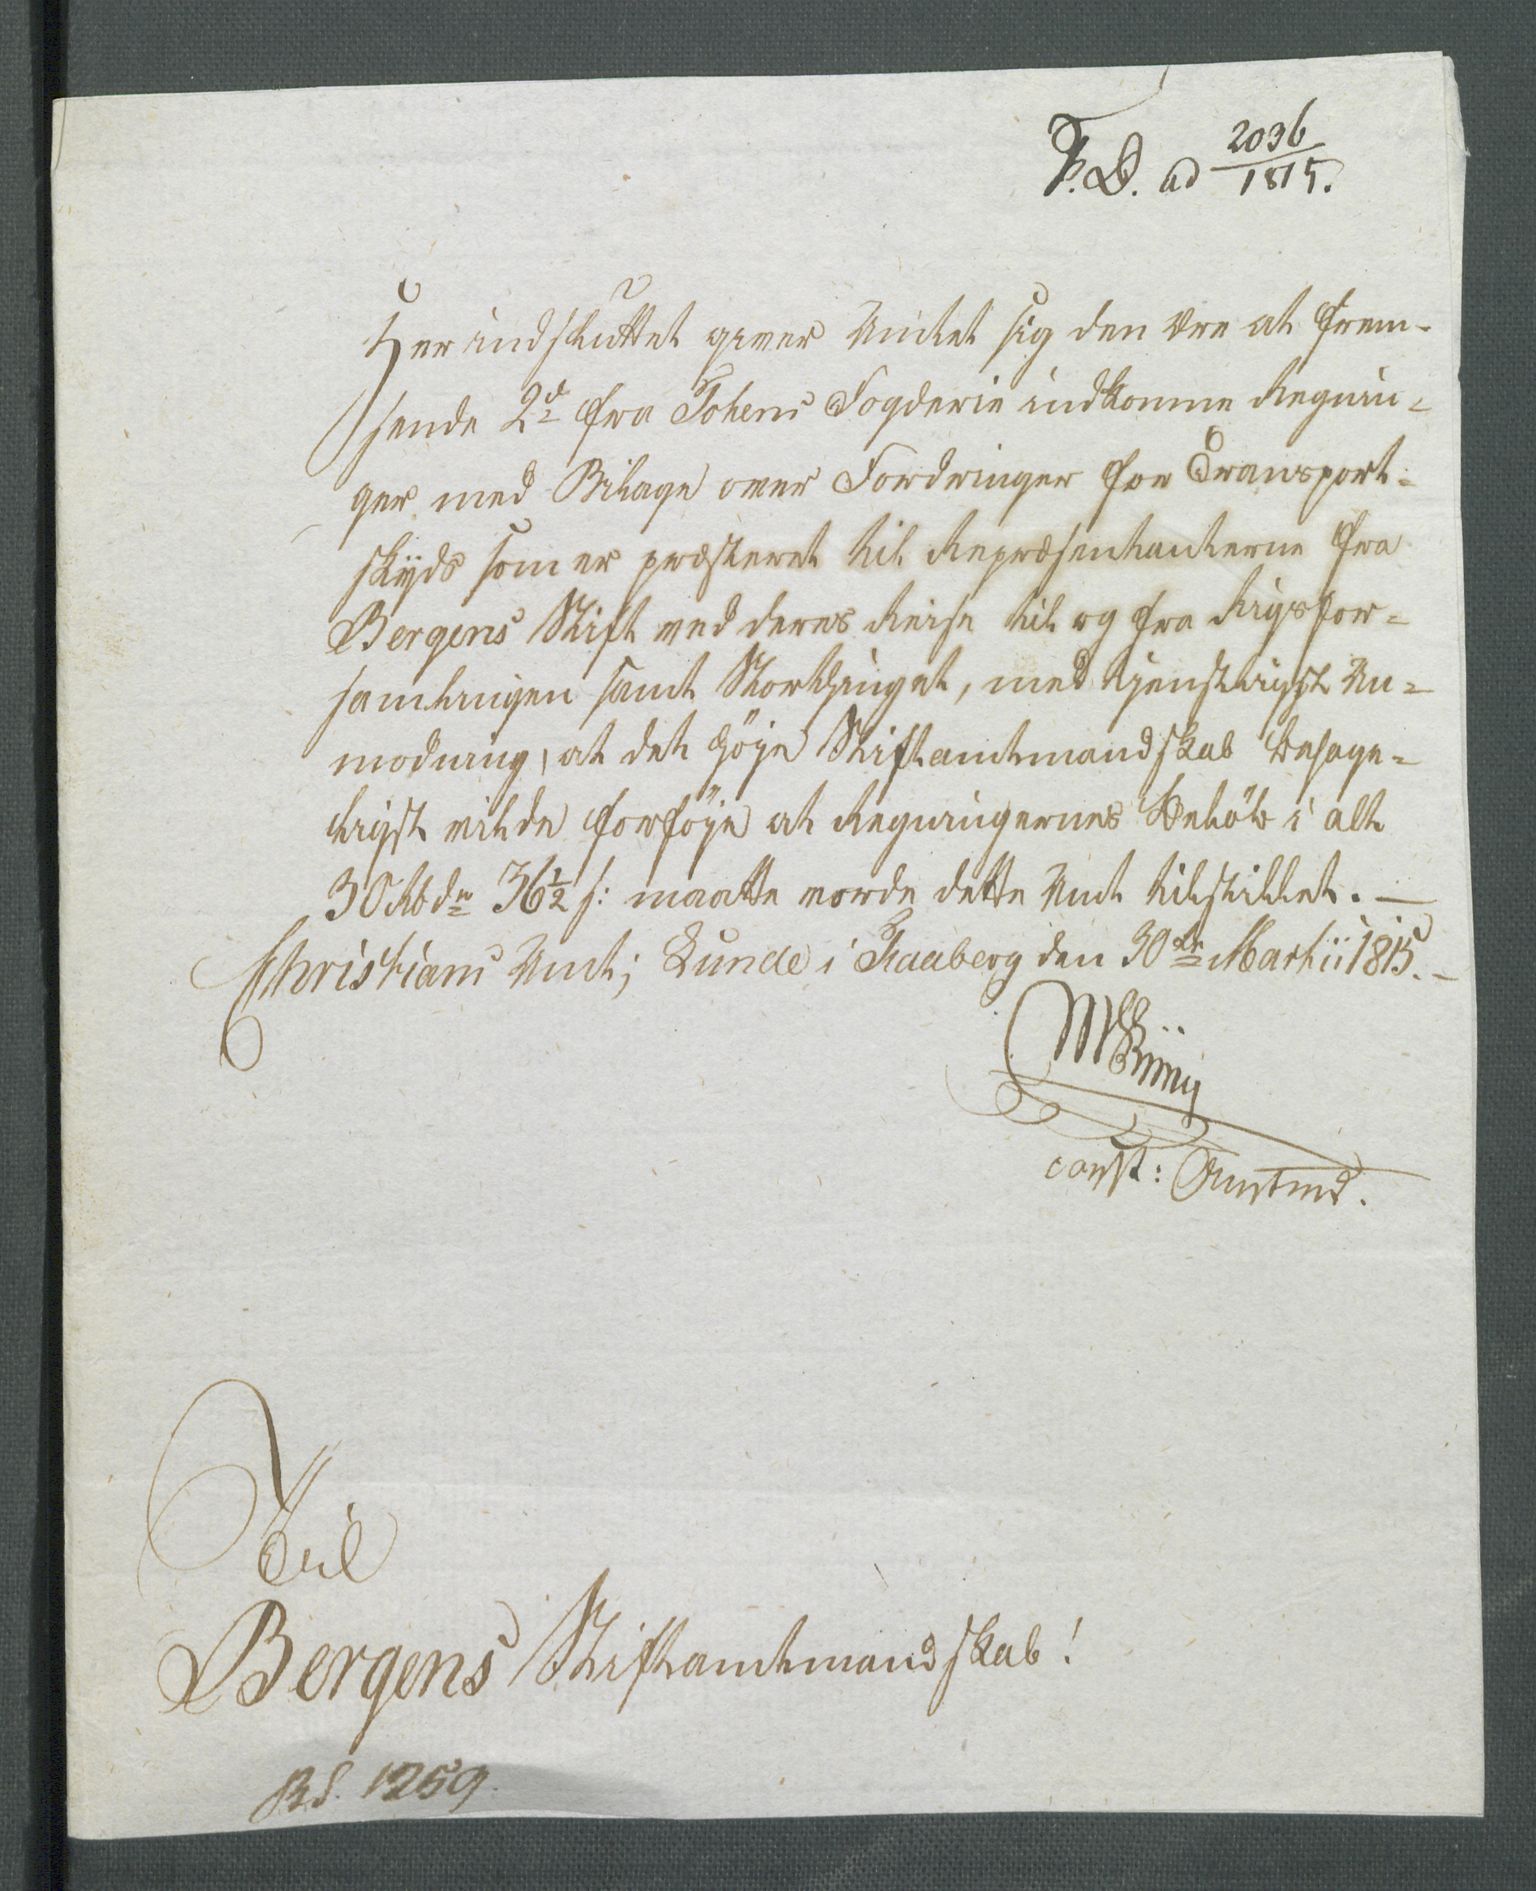 F.D. ad 2036/1815.
Her indsluttet giver Amtet sig den Ære at frem-
sende 2de fra Totens Fogderie indkomne Regnin-
ger med Bilage over Fordringer for Transport-
skyds som er præsteret til Repræsentanterne fra
Bergens Stift ved deres Reise til og fra Rigsfor-
samlingen samt Storthinget, med tjenstligst An-
modning, at det höje Stiftamtmandskab behage-
ligst vilde forföje at Regningernes Belöb i alt
30 Rbdr 36½ s: maatte vorde dette Amt tilstillet. —
Christians Amt; Lunde i Faaberg den 30te Martii 1815. —
const: Amtmd.
Til
Bergens Stiftamtmandskab!
1259.